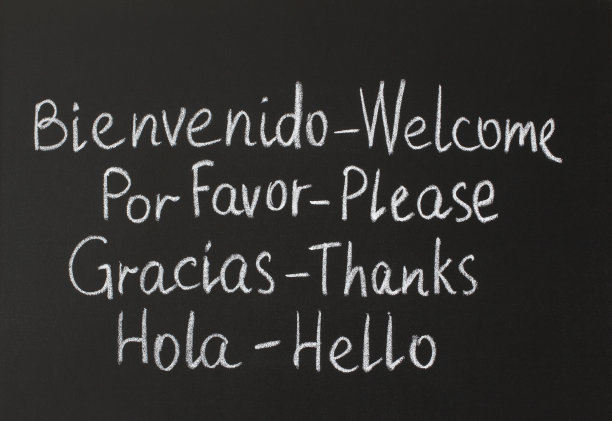 Bienvenido-Welcome
Por Favor-Please
Gracias-Thanks
Hola-Hello